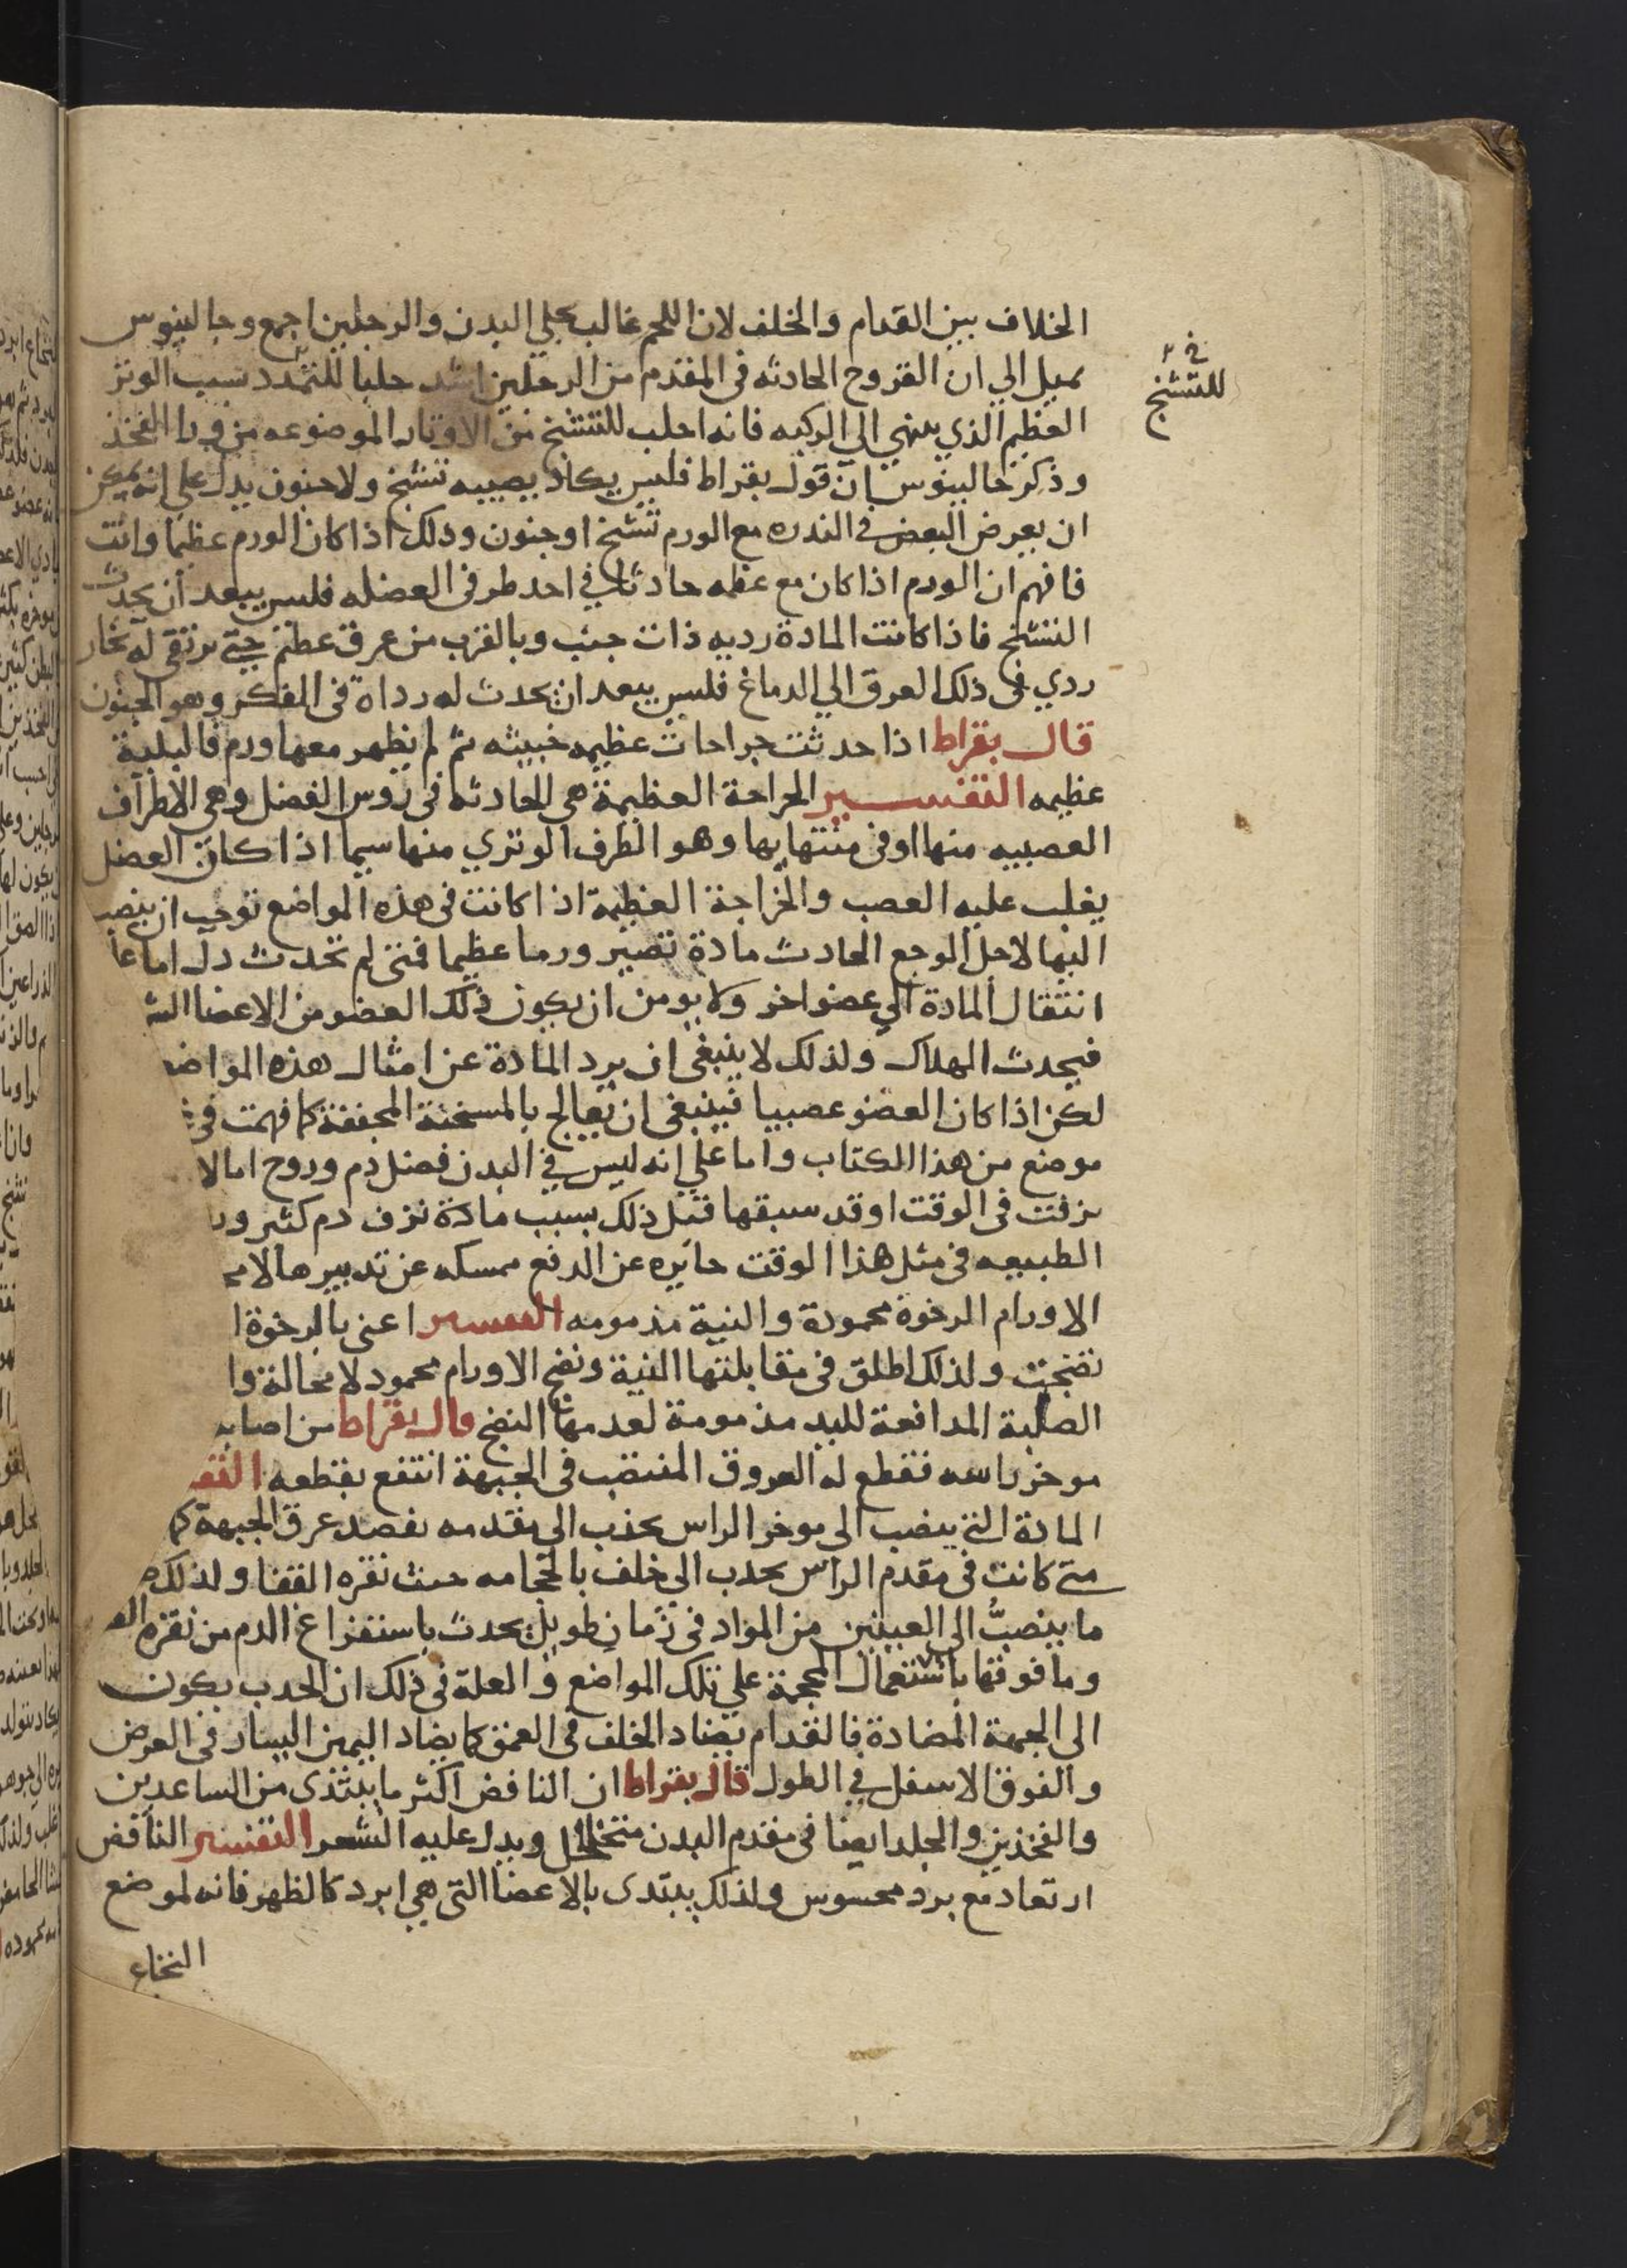 الخلاف بين القدام والخلف لان اللحم غالب علي البدن والرجلين اجمع وجالينوس
يميل الي ان القروح الحادثه فى المقدم من الرجلين اشد جلبا للتمدد بسبب الوتر
العظيم الذي ينهي الى الركبه فانه اجلب للتشنج من الاوتار الموضوعه من ورا الفخذ
وذكر جالينوس ان قول بقراط فليس يكاد يصيبه تشنج ولا جنون يدل علي انه يمكن
ان يعرض لبعض فى الندره مع الورم تشنج او جنون وذلك اذا كان الورم عظيما وانت
فافهم ان الورم اذا كان مع عظمه حادثا في احد طرفى العضله فليس يبعد ان يحدث
التشنج فاذا كانت المادة رديه ذات جنب وبالقرب من عرق عظيم حتي يرتقى له بخار
ردي فى ذلك العرق الي الدماغ فليس يبعد ان يحدث له رداة فى الفكر وهو الجنون
قال بقراط اذا حدثت جراحات عظيمه خبيثه ثم لم يظهر معها ورم فالبلية
عظيمه التفسير الجراحة العظيمة هى الحادثه فى روس العضل وهى الاطراف
العصبيه منها او فى منتهايها وهو الطرف الوتري منها سيما اذا كان العضل
يغلب عليه العصب والجراحة العظيمة اذا كانت فى هذه المواضع توجب ان ينصب
اليها لاجل الوجع الحادث مادة تصير ورما عظيما فمتى لم تحدث دل اما عل
انتقال المادة الي عضو اخر ولا يومن ان يكون ذلك العضو من الاعضا الش
فيحدث الهلاك ولذلك لا ينبغى ان يرد المادة عن امثال هذه المواض
لكن اذا كان العضو عصبيا فينبغى ان تعالج بالمسخنة المجففة كما فهمت فى
موضع من هذا الكتاب واما علي انه ليس في البدن فضل دم وروح اما لا
نزفت فى الوقت او قد سبقها قبل ذلك بسبب مادة نزف دم كثير ور
الطبيعه فى مثل هذا الوقت حايره عن الدفع ممسكه عن تدبيرها لامر
الاورام الرخوة محمودة والنية مذمومه التفسير اعنى بالرخوة ا
نضجت ولذلك اطلق فى مقابلتها النية ونضج الاورام محمود لا محالة وا
الصلبة المدافعة لليد مذمومة لعدمها النضج قال بقراط من اصابه
موخر راسه فقطع له العروق المنتصب فى الجبهة انتفع بقطعه التف
المادة التى ينصب الى موخر الراس يجذب الى مقدمه بفصد عرق الجبهة كم
متى كانت فى مقدم الراس يجذب الي خلف بالحجامه حيث نقره القفا ولذلك
ما ينصب الى العينين من المواد فى زمان طويل يحدث باستفراغ الدم من نقره الق
وما فوقها باستعمال المحجمة علي تلك المواضع والعلة فى ذلك ان الجذب يكون
الى الجهة المضادة فالقدام يضاد الخلف فى العمق كما يضاد اليمين اليسار فى العرض
والفوق الاسفل في الطول قال بقراط ان النافض اكثر ما يبتدى من الساعدين
والفخذين والجلد ايضا فى مقدم البدن متخلخل ويدل عليه الشعر التفسير النافض
ارتعاد مع برد محسوس ولذلك يبتدى بالاعضا التى هى ابرد كالظهر فانه لموضع
النخاع
للتشنج